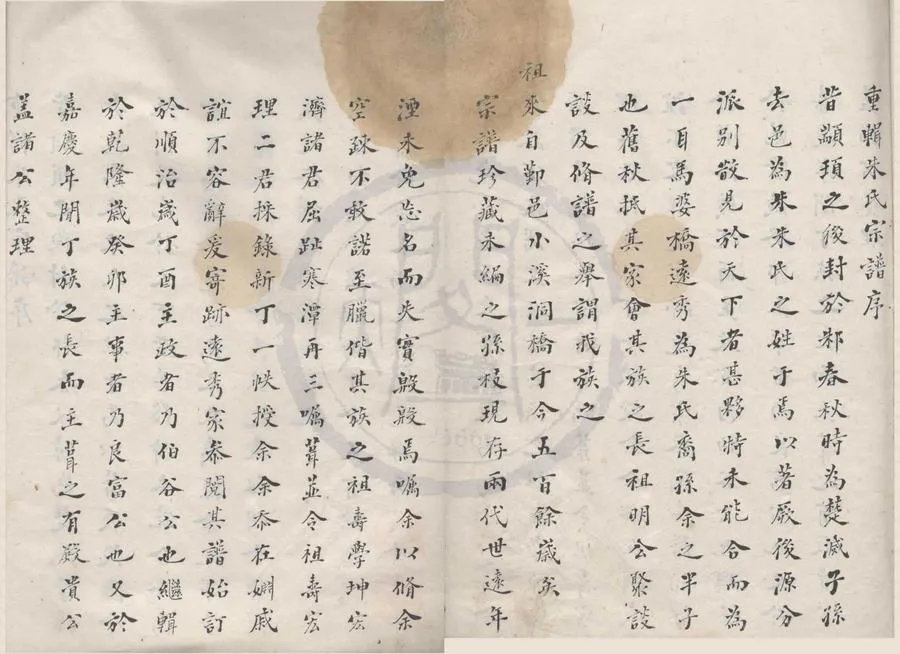 重輯朱氏宗譜序
昔顓頊之後封於邾春秋時為楚滅子孫
去邑為朱朱氏之姓于焉以著厥後源分
派別散見於天下者甚夥特未能合而為
一耳馬婆橋遠秀為朱氏裔孫余之半子
也舊秋抵其家會其族之長祖明公聚談
談及脩譜之舉謂我族之
祖來自鄞邑小溪洞橋于今五百餘歲矣
宗譜珍藏未編之孫枝現存兩代世遠年
湮未免忘名而失實殷殷焉囑余以脩余
空疎不敢諾至臘偕其族之祖壽學珅宏
濟諸君屈趾寒潭再三囑葺並令祖壽宏
理二君採錄新丁一帙授余余忝在姻戚
誼不容辭爰寄跡遠秀家參閱其譜始訂
於順治歲丁酉主政者乃伯谷公也繼輯
於乾隆歲癸卯主事者乃良富公也又於
嘉慶年閒丁族之長而主葺之有殿賞公
盖諸公整理